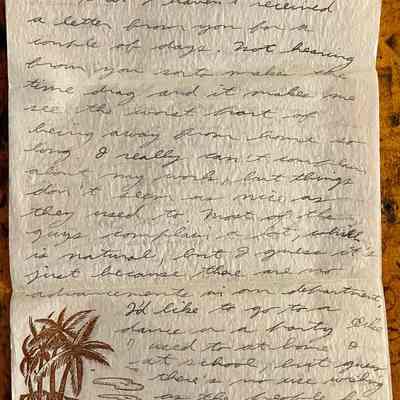 I haven't received
a letter from you for a
couple of days. Not hearing
from you sorta makes the
time drag and it makes me
see the worst part of
being away from home so
long. I really can't complain
about my work, but things
don't seem as nice as
they used to. Most of the
guys complain a lot, which
is natural, but I guess it's
just because there are no
advancements in our department.
I'd like to go to a
dance or a party like
I used to at home &
at school, but guess
there's no use wishing
as the